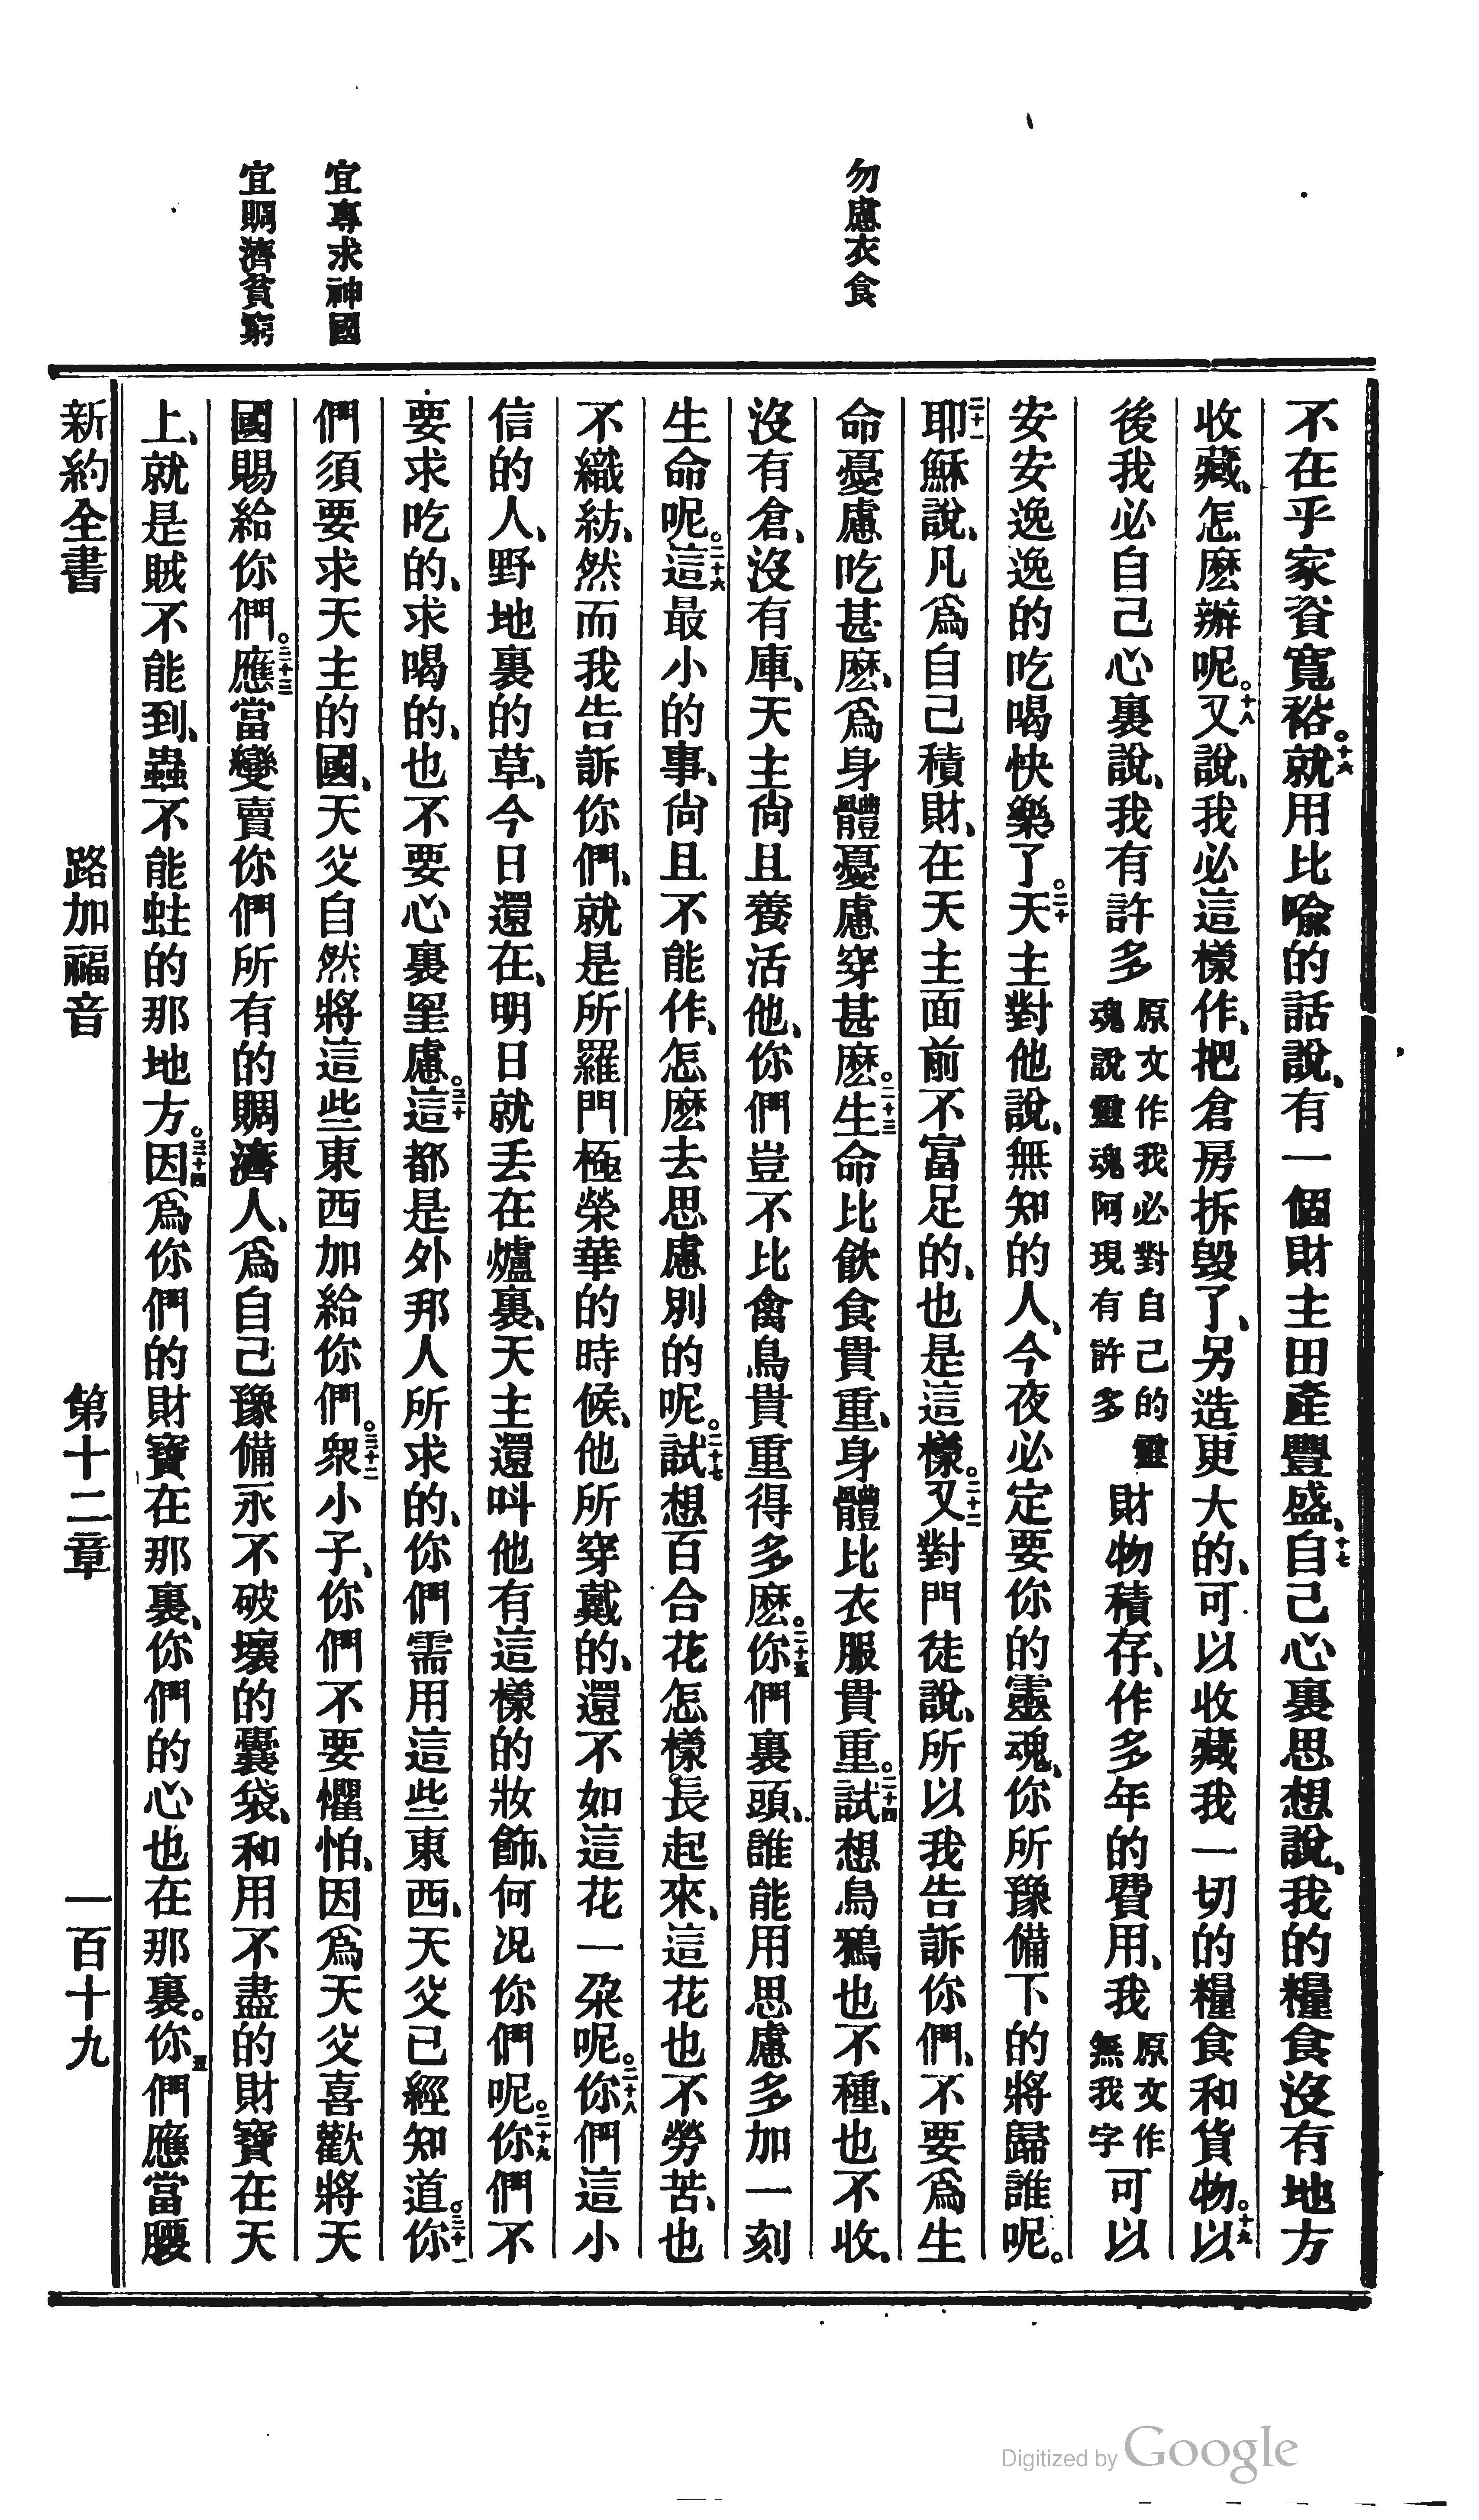 勿慮衣食
宜專求神國
宜賙濟貧窮
不在乎家資寬裕。十六就用比喻的話說、有一個財主田產豐盛、十七自己心裏思想說、我的糧食沒有地方
收藏、怎麽辦呢。十八又說、我必這樣作、把倉房拆毀了、另造更大的、可以收藏我一切的糧食和貨物。十九以
後我必自己心裏說、我有許多原文作我必對自己的靈魂說靈魂阿現有許多財物積存、作多年的費用、我原文作無我字可以
安安逸逸的吃喝快樂了。二十天主對他說、無知的人、今夜必定要你的靈魂、你所豫備下的將歸誰呢。
二十一耶穌說、凡爲自己積財、在天主面前不富足的、也是這樣。二十二又對門徒說、所以我告訴你們、不要爲生
命憂慮吃甚麽、爲身體憂慮穿甚麽。二十三生命比飲食貴重、身體比衣服貴重。二十四試想烏鴉也不種、也不收、
沒有倉、沒有庫、天主尙且養活他、你們豈不比禽鳥貴重得多麽。二十五你們裏頭、誰能用思慮多加一刻
生命呢。二十六這最小的事、尙且不能作、怎麽去思慮別的呢。二十七試想百合花怎樣長起來、這花也不勞苦、也
不織紡、然而我告訴你們、就是所羅門極榮華的時候、他所穿戴的、還不如這花一朶呢。二十八你們這小
信的人、野地裏的草、今日還在、明日就丟在爐裏、天主還呌他有這樣的妝飾、何况你們呢。二十九你們不
要求吃的、求喝的、也不要心裏罣慮。三十這都是外邦人所求的、你們需用這些東西、天父已經知道。三十一你
們須要求天主的國、天父自然將這些東西加給你們。三十二衆小子、你們不要懼怕、因爲天父喜歡將天
國賜給你們。三十三應當變賣你們所有的賙濟人、爲自己豫備永不破壞的囊袋、和用不盡的財寶在天
上、就是賊不能到、蟲不能蛀的那地方。三十四因爲你們的財寶在那裏、你們的心也在那裏。五你們應當腰
新約全書　路加福音　第十二章　一百十九
Digitized by Google